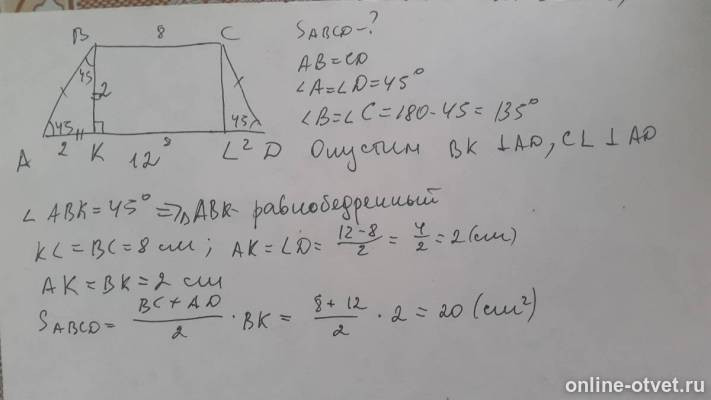 B 8 C
45 2
45 45
A 2 K 8 L 2 D
12
S_ABCD - ?
AB = CD
∠A = ∠D = 45°
∠B = ∠C = 180 - 45 = 135°
Опустим BK ⊥ AD, CL ⊥ AD
∠ABK = 45° ⇒ △ABK - равнобедренный
KL = BC = 8 см ; AK = LD = \frac{12-8}{2} = \frac{4}{2} = 2 (см)
AK = BK = 2 см
S_ABCD = \frac{BC + AD}{2} · BK = \frac{8 + 12}{2} · 2 = 20 (см²)
online-otvet.ru